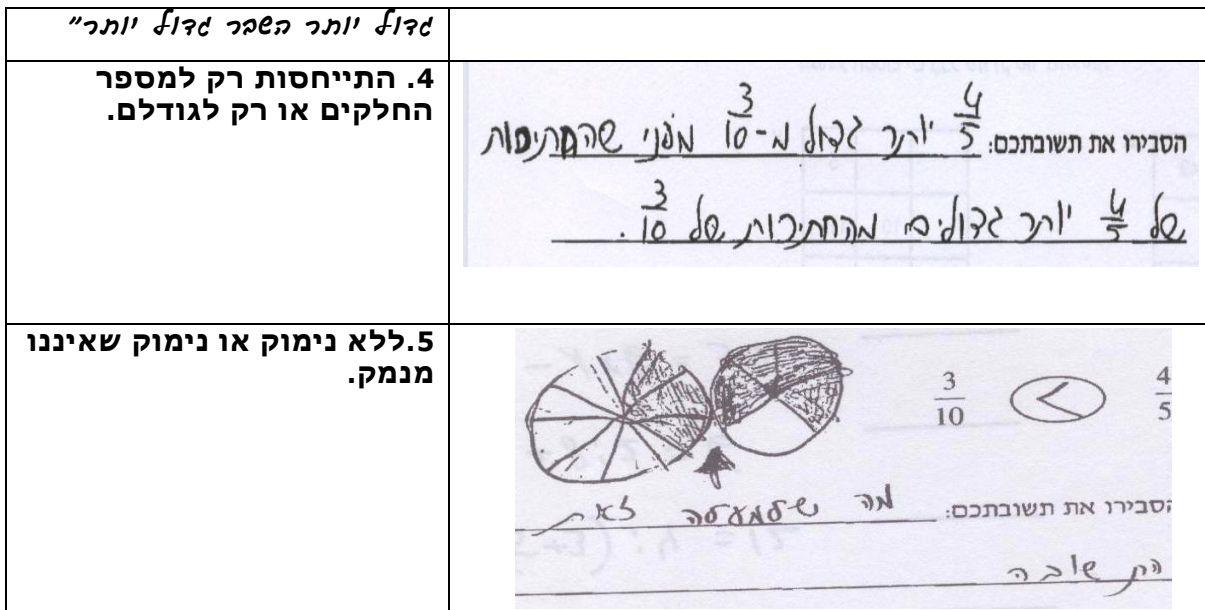 גדול יותר השבר גדול יותר"
4. התייחסות רק למספר
החלקים או רק לגודלם.
הסבירו את תשובתכם: 4/5 יותר גדול מ-3/10 מפני שהחתיכות
של 4/5 יותר גדולים מהחתיכות של 3/10.
5.ללא נימוק או נימוק שאיננו
מנמק.
3/10 < 4/5
הסבירו את תשובתכם: מה שלמעלה זאת
התשובה